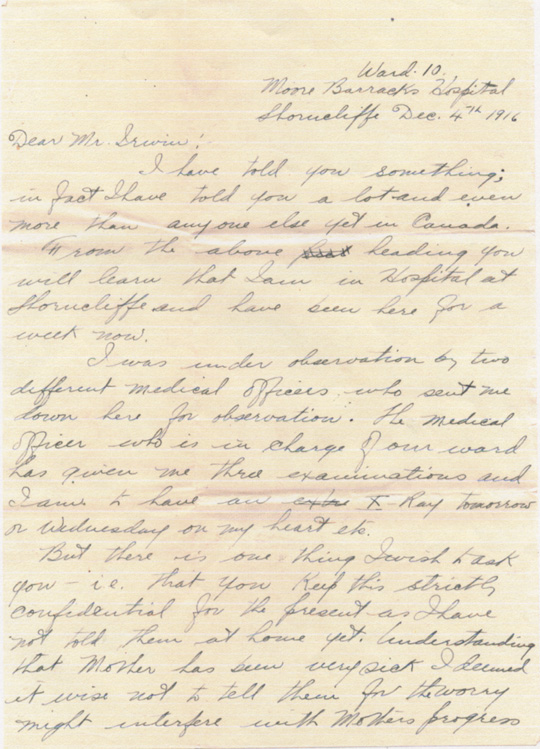 Ward. 10.
Moore Barracks Hospital
Shorncliffe Dec. 4th 1916
Dear Mr. Irwin!
I have told you something;
in fact I have told you a lot and even
more than anyone else yet in Canada.
From the above heading you
will learn that I am in Hospital at
Shorncliffe and have been here for a
week now.
I was under observation by two
different medical officers who sent me
down here for observation. The medical
officer who is in charge of our ward
has given me three examinations and
I am to have an X Ray tomorrow
or Wednesday on my heart etc.
But there is one thing I wish to ask
you - i.e. that you Keep this strictly
confedential for the present as I have
not told them at home yet. Understanding
that Mother has been very sick I deemed
it wise not to tell them for the worry
might interfere with Mothers progress